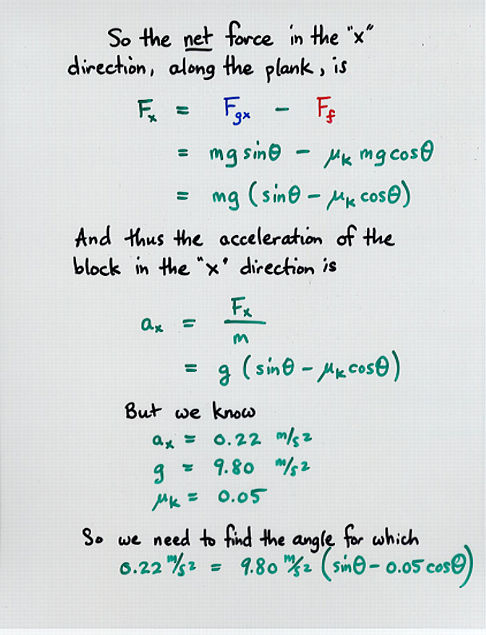 So the net force in the "x"
direction, along the plank, is
Fx = Fgx - Ff
= mg sinθ - μk mg cosθ
= mg (sinθ - μk cosθ)
And thus the acceleration of the
block in the "x" direction is
ax = Fx
m
= g (sinθ - μk cosθ)
But we know
ax = 0.22 m/s2
g = 9.80 m/s2
μk = 0.05
So we need to find the angle for which
0.22 m/s2 = 9.80 m/s2 (sinθ - 0.05 cosθ)